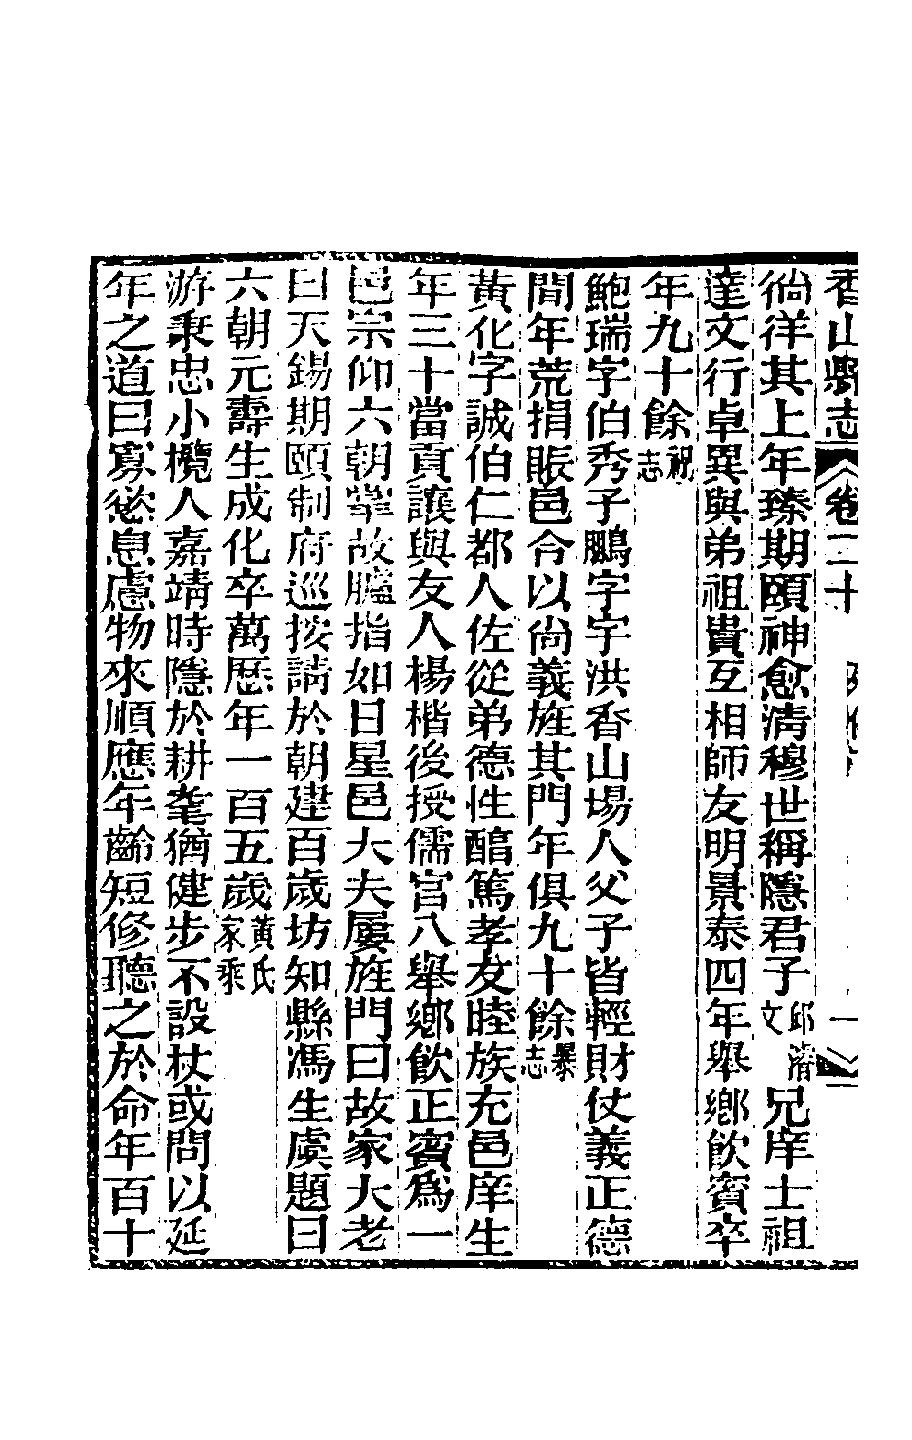 香山縣志 卷二十 一
徜徉其上年臻期頤神愈清穆世稱隱君子邱濬文兄庠士祖
達文行卓異與弟祖貴互相師友明景泰四年舉鄉飲賓卒
年九十餘祝志
鮑瑞字伯秀子鵬字宇洪香山場人父子皆輕財仗義正德
間年荒捐賑邑令以尚義旌其門年俱九十餘暴志
黃化字誠伯仁都人佐從弟德性醕篤孝友睦族充邑庠生
年三十當貢讓與友人楊楷後授儒官八舉鄉飲正賓爲一
邑宗仰六朝掌故臚指如日星邑大夫屢旌門曰故家大老
曰天錫期頤制府巡按請於朝建百歲坊知縣馮生虞題曰
六朝元壽生成化卒萬歷年一百五歲黃氏家乘
游秉忠小欖人嘉靖時隱於耕耄猶健步不設杖或問以延
年之道曰寡慾息慮物來順應年齡短修聽之於命年百十